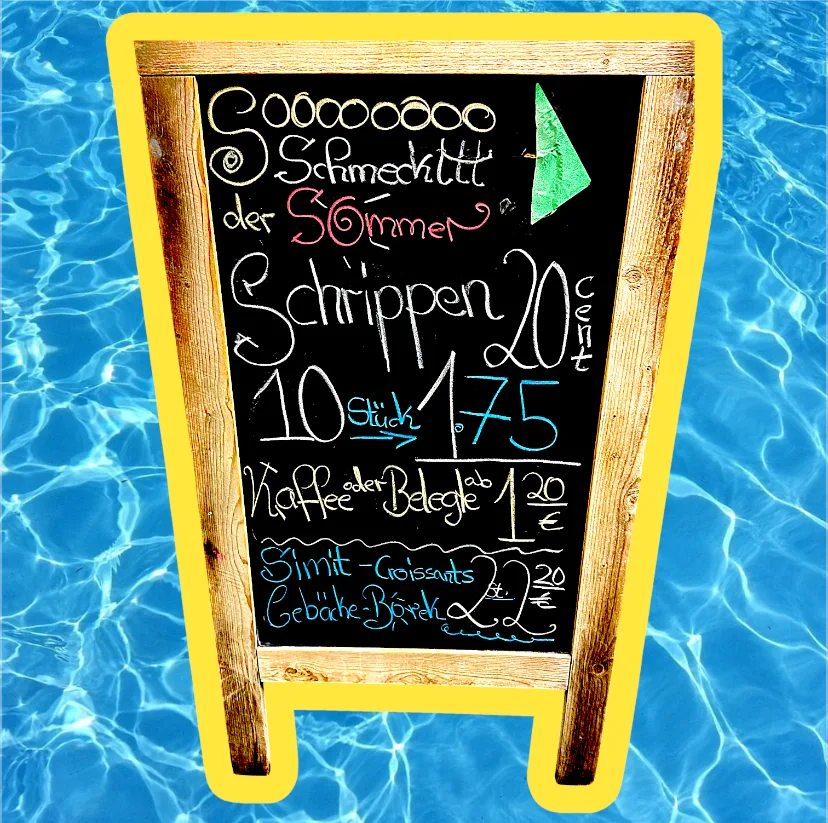 Soooooooo
Schmeckttt
der Sommer
Schrippen 20 cent
10 Stück 1.75
Kaffee oder Belegte ab 1 20 €
Simit - Croissants
Gebäcke - Börek 2 St. 2 20 €